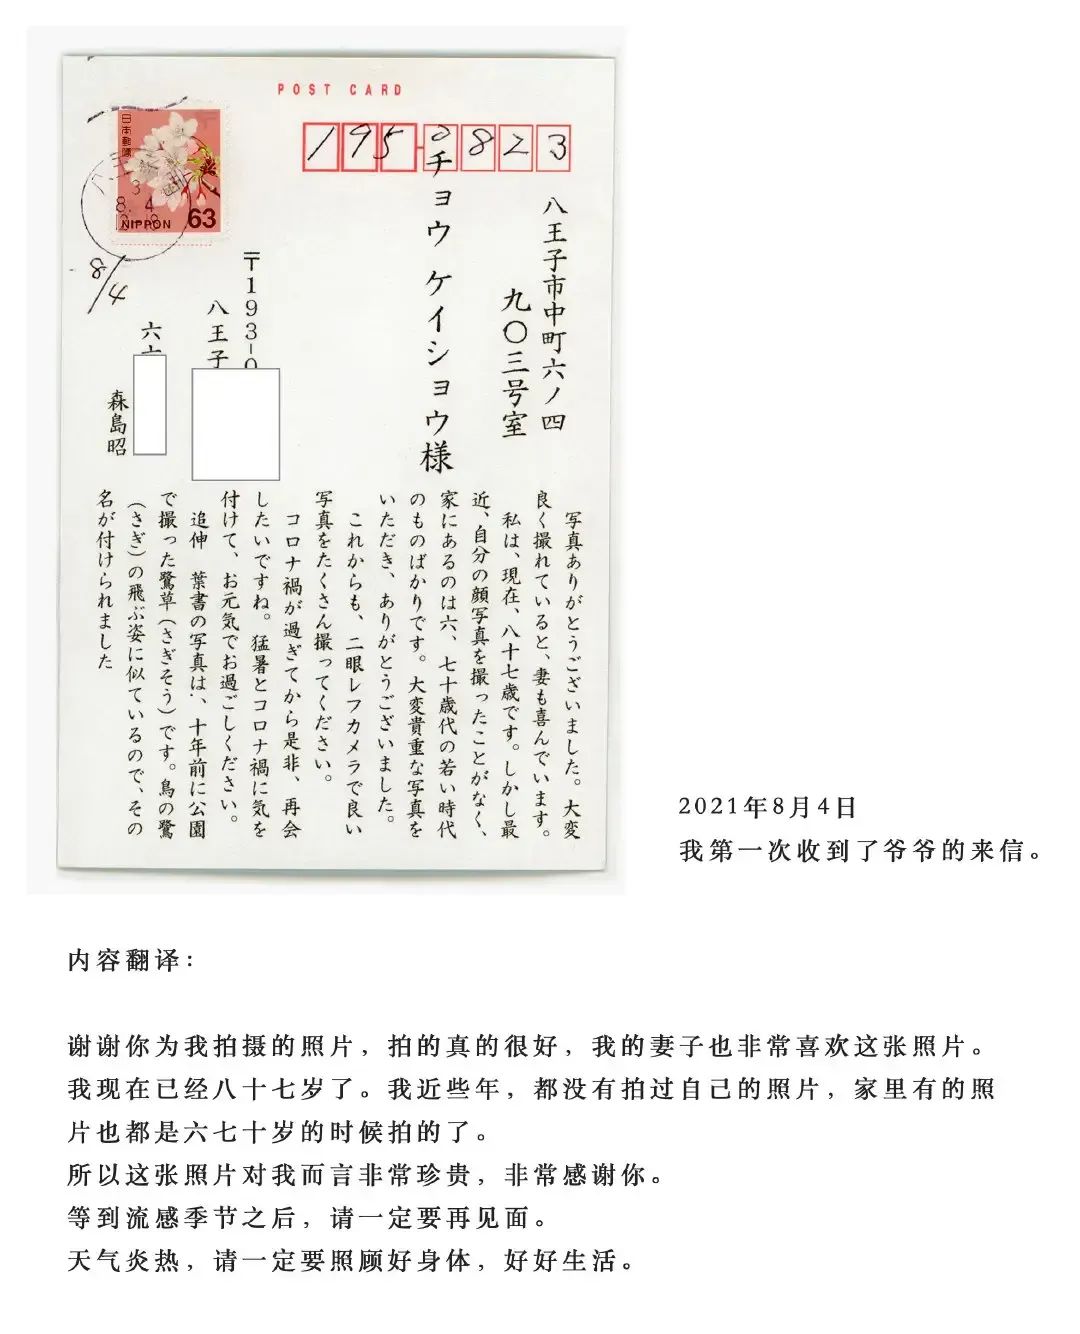 POST CARD
195-0823
日本郵便
NIPPON 63
8/4
八王子市中町六ノ四
九〇三号室
チョウ ケイショウ様
〒193-0
八王子
六
森島昭
写真ありがとうございました。大変
良く撮れていると、妻も喜んでいます。
私は、現在、八十七歳です。しかし最
近、自分の顔写真を撮ったことがなく、
家にあるのは六、七十歳代の若い時代
のものばかりです。大変貴重な写真を
いただき、ありがとうございました。
これからも、二眼レフカメラで良い
写真をたくさん撮ってください。
コロナ禍が過ぎてから是非、再会
したいですね。猛暑とコロナ禍に気を
付けて、お元気でお過ごしください。
追伸 葉書の写真は、十年前に公園
で撮った鷺草(さぎそう)です。鳥の鷺
(さぎ)の飛ぶ姿に似ているので、その
名が付けられました
2021年8月4日
我第一次收到了爷爷的来信。
内容翻译：
谢谢你为我拍摄的照片，拍的真的很好，我的妻子也非常喜欢这张照片。
我现在已经八十七岁了。我近些年，都没有拍过自己的照片，家里有的照
片也都是六七十岁的时候拍的了。
所以这张照片对我而言非常珍贵，非常感谢你。
等到流感季节之后，请一定要再见面。
天气炎热，请一定要照顾好身体，好好生活。